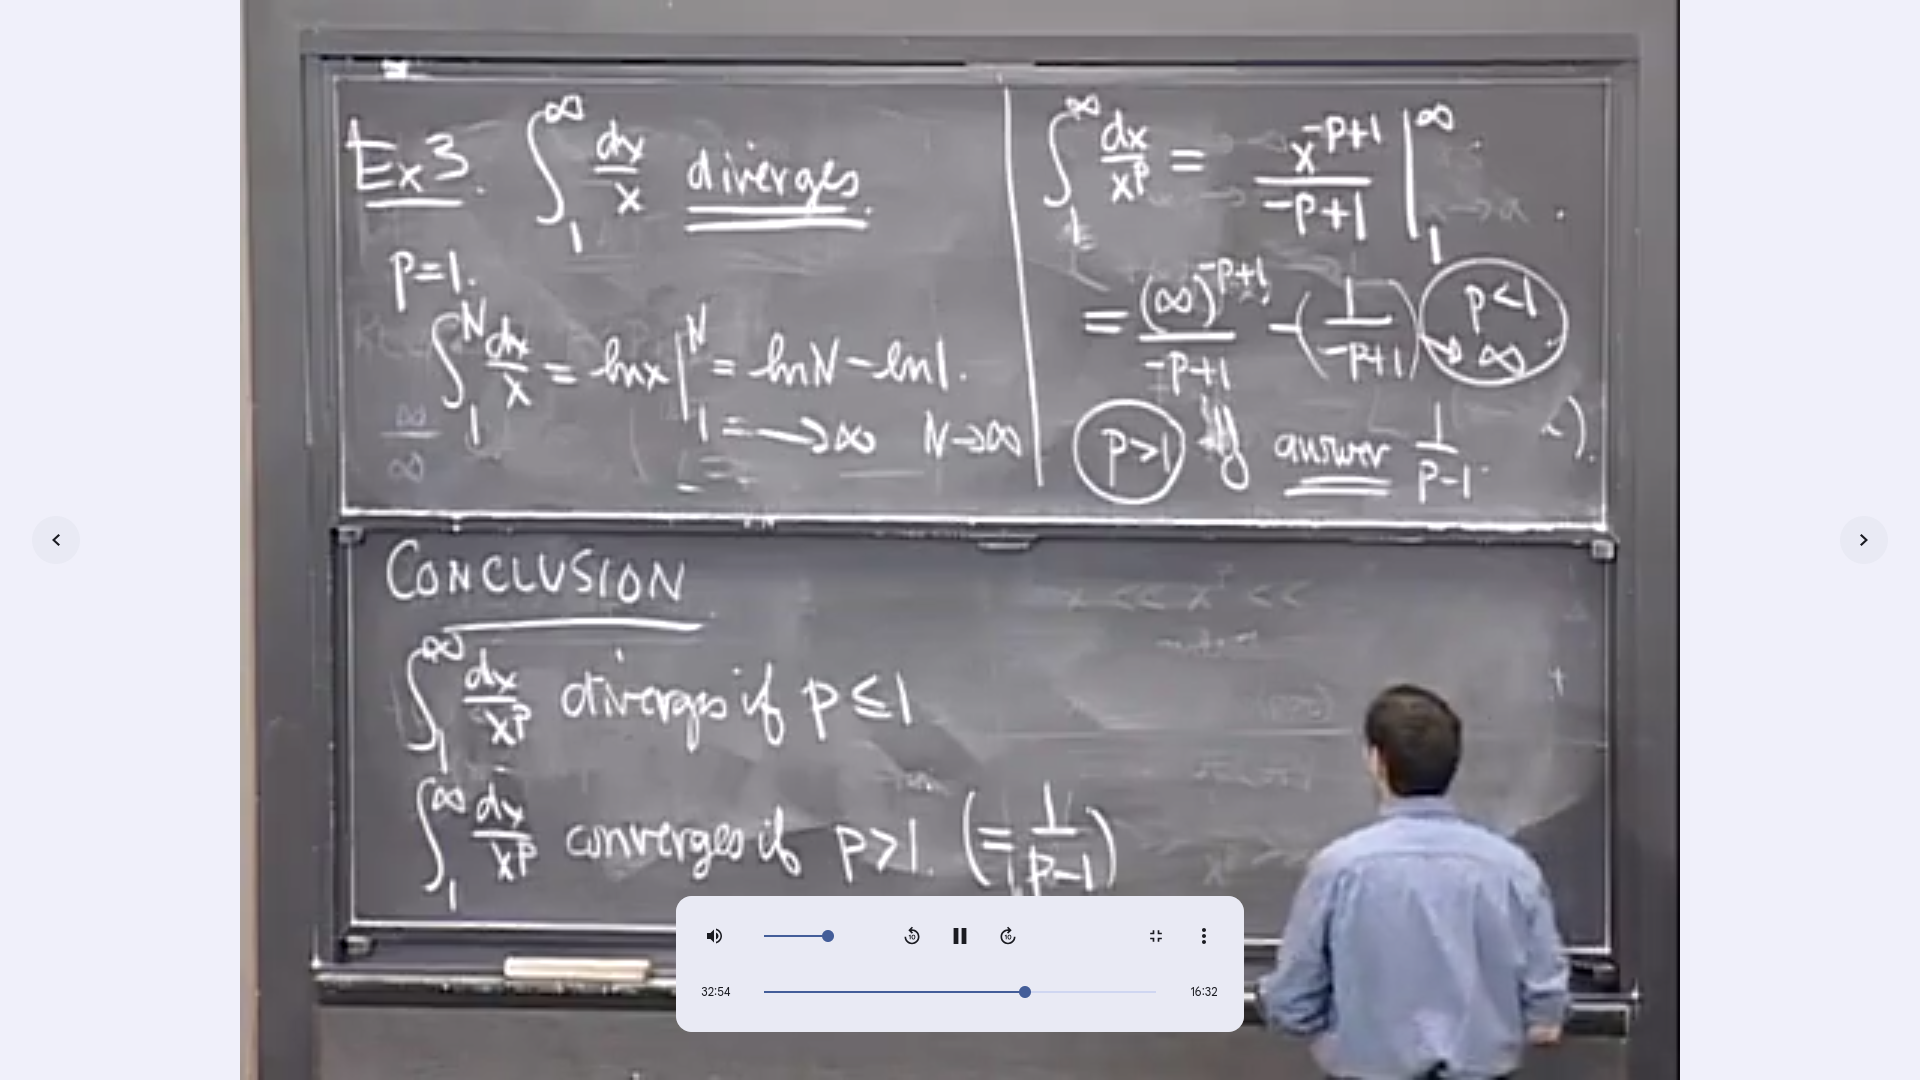 Ex3. ∫₁^∞ dx/x diverges.
p=1.
∫₁^N dx/x = ln x |₁^N = ln N − ln 1.
= → ∞ N → ∞
∞/∞
∫₁^∞ dx/x^p = x^(-p+1)/(-p+1) |₁^∞
= (∞)^(-p+1)/(-p+1) − (1/(-p+1)) p<1 → ∞
p>1 answer 1/(p-1)
CONCLUSION
∫₁^∞ dx/x^p diverges if p ≤ 1
∫₁^∞ dx/x^p converges if p>1. (= 1/(p-1))
32:54
16:32